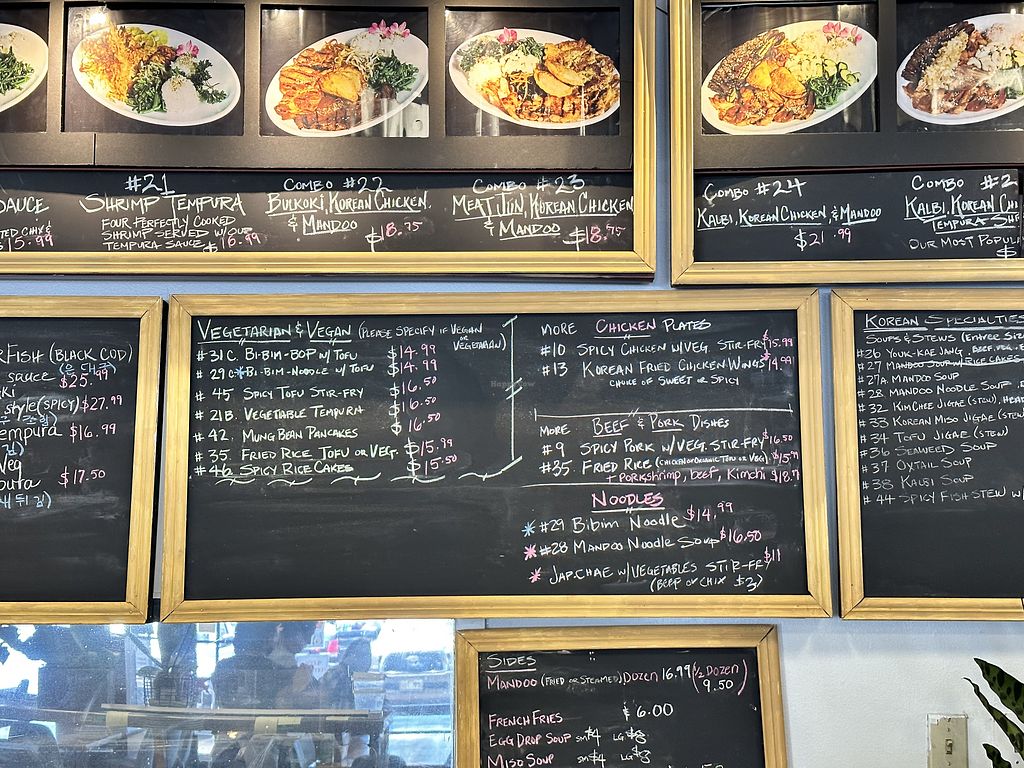 SAUCE
$15.99
#21
SHRIMP TEMPURA
FOUR PERFECTLY COOKED
SHRIMP SERVED W/OUR
TEMPURA SAUCE $16.99
COMBO #22
BULKOKI, KOREAN CHICKEN,
& MANDOO
$18.75
COMBO #23
MEAT JUN, KOREAN CHICKEN
& MANDOO $18.75
COMBO #24
KALBI, KOREAN CHICKEN, & MANDOO
$21.99
COMBO #2
KALBI, KOREAN CHI
TEMPURA SH
OUR MOST POPUL
$
RFISH (BLACK COD)
sauce
$25.99
style (SPICY) $27.99
empura $16.99
Veg
pura $17.50
VEGETARIAN & VEGAN (PLEASE SPECIFY IF VEGAN
OR
VEGETARIAN)
#31C. BI-BIM-BOP W/ TOFU $14.99
#29C* BI-BIM-NOODLE W/ TOFU $14.99
#45 SPICY TOFU STIR-FRY $16.50
#21B. VEGETABLE TEMPURA $16.50
#42. MUNG BEAN PANCAKES $16.50
#35 FRIED RICE TOFU OR VEG. $15.99
#46 SPICY RICE CAKES $15.50
MORE CHICKEN PLATES
#10 SPICY CHICKEN W/VEG. STIR-FRY $15.99
#13 KOREAN FRIED CHICKEN WINGS $14.99
CHOICE OF SWEET OR SPICY
MORE BEEF & PORK DISHES
#9 SPICY PORK W/VEG. STIR-FRY $16.50
#35 FRIED RICE (CHICKEN OR ORGANIC TOFU OR VEG) $15.99
+ Pork, shrimp, beef, Kimchi $18.9
NOODLES
*#29 BIBIM NOODLE $14.99
*#28 MANDOO NOODLE SOUP $16.50
* JAPCHAE W/VEGETABLES STIR-FF $11
(BEEF OR CHIX $3)
KOREAN SPECIALTIES
SOUPS & STEWS (ENTREE SIZE
#26 YOUK-KAE JANG, BEEF, VEG, E
#27 MANDOO SOUP W/RICE CAKES
#27A MANDOO SOUP
#28 MANDOO NOODLE SOUP
#32 KIMCHEE JIGAE (STEW), HEA
#33 KOREAN MISO JIGAE (STEW)
#34 TOFU JIGAE (STEW)
#36 SEAWEED SOUP
#37 OXTAIL SOUP
#38 KALBI SOUP
#44 SPICY FISH STEW W/
SIDES
MANDOO (FRIED OR STEAMED) DOZEN 16.99 (1/2 DOZEN
9.50)
FRENCH FRIES $6.00
EGG DROP SOUP SM $4 LG $8
MISO SOUP SM $4 LG $8